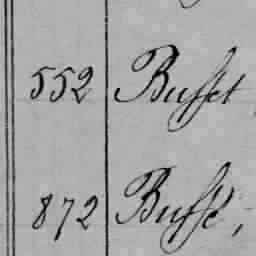 552 Buffet
872 Buffé,